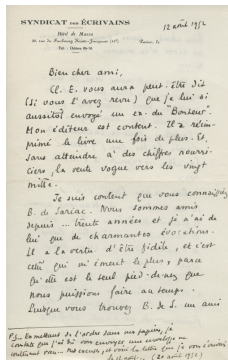 SYNDICAT DES ÉCRIVAINS
Hôtel de Massa
38, rue du Faubourg Saint-Jacques (14e)
12 avril 1952
Bien cher ami,
Cl. E. vous aura peut-être dit
(si vous l'avez revu) que je lui ai
aussitôt envoyé un ex. du "Bonheur".
Mon éditeur est content. Il a réim-
primé le livre une fois de plus. Et,
sans atteindre à des chiffres nourri-
ciers, la vente vogue vers les vingt
mille.
Je suis content que vous connaissiez
B. de Sariac. Nous sommes amis
depuis ... trente années et je n'ai de
lui que de charmantes évocations.
Il a la vertu d'être fidèle, et c'est
celle qui m'émeut le plus, parce
qu'elle est le seul pied-de-nez que
nous puissions faire au temps.
Lorsque vous trouvez B. de S. un ami
P.S. En mettant de l'ordre dans mes papiers, je
constate que j'ai dû vous envoyer une enveloppe ne
contenant